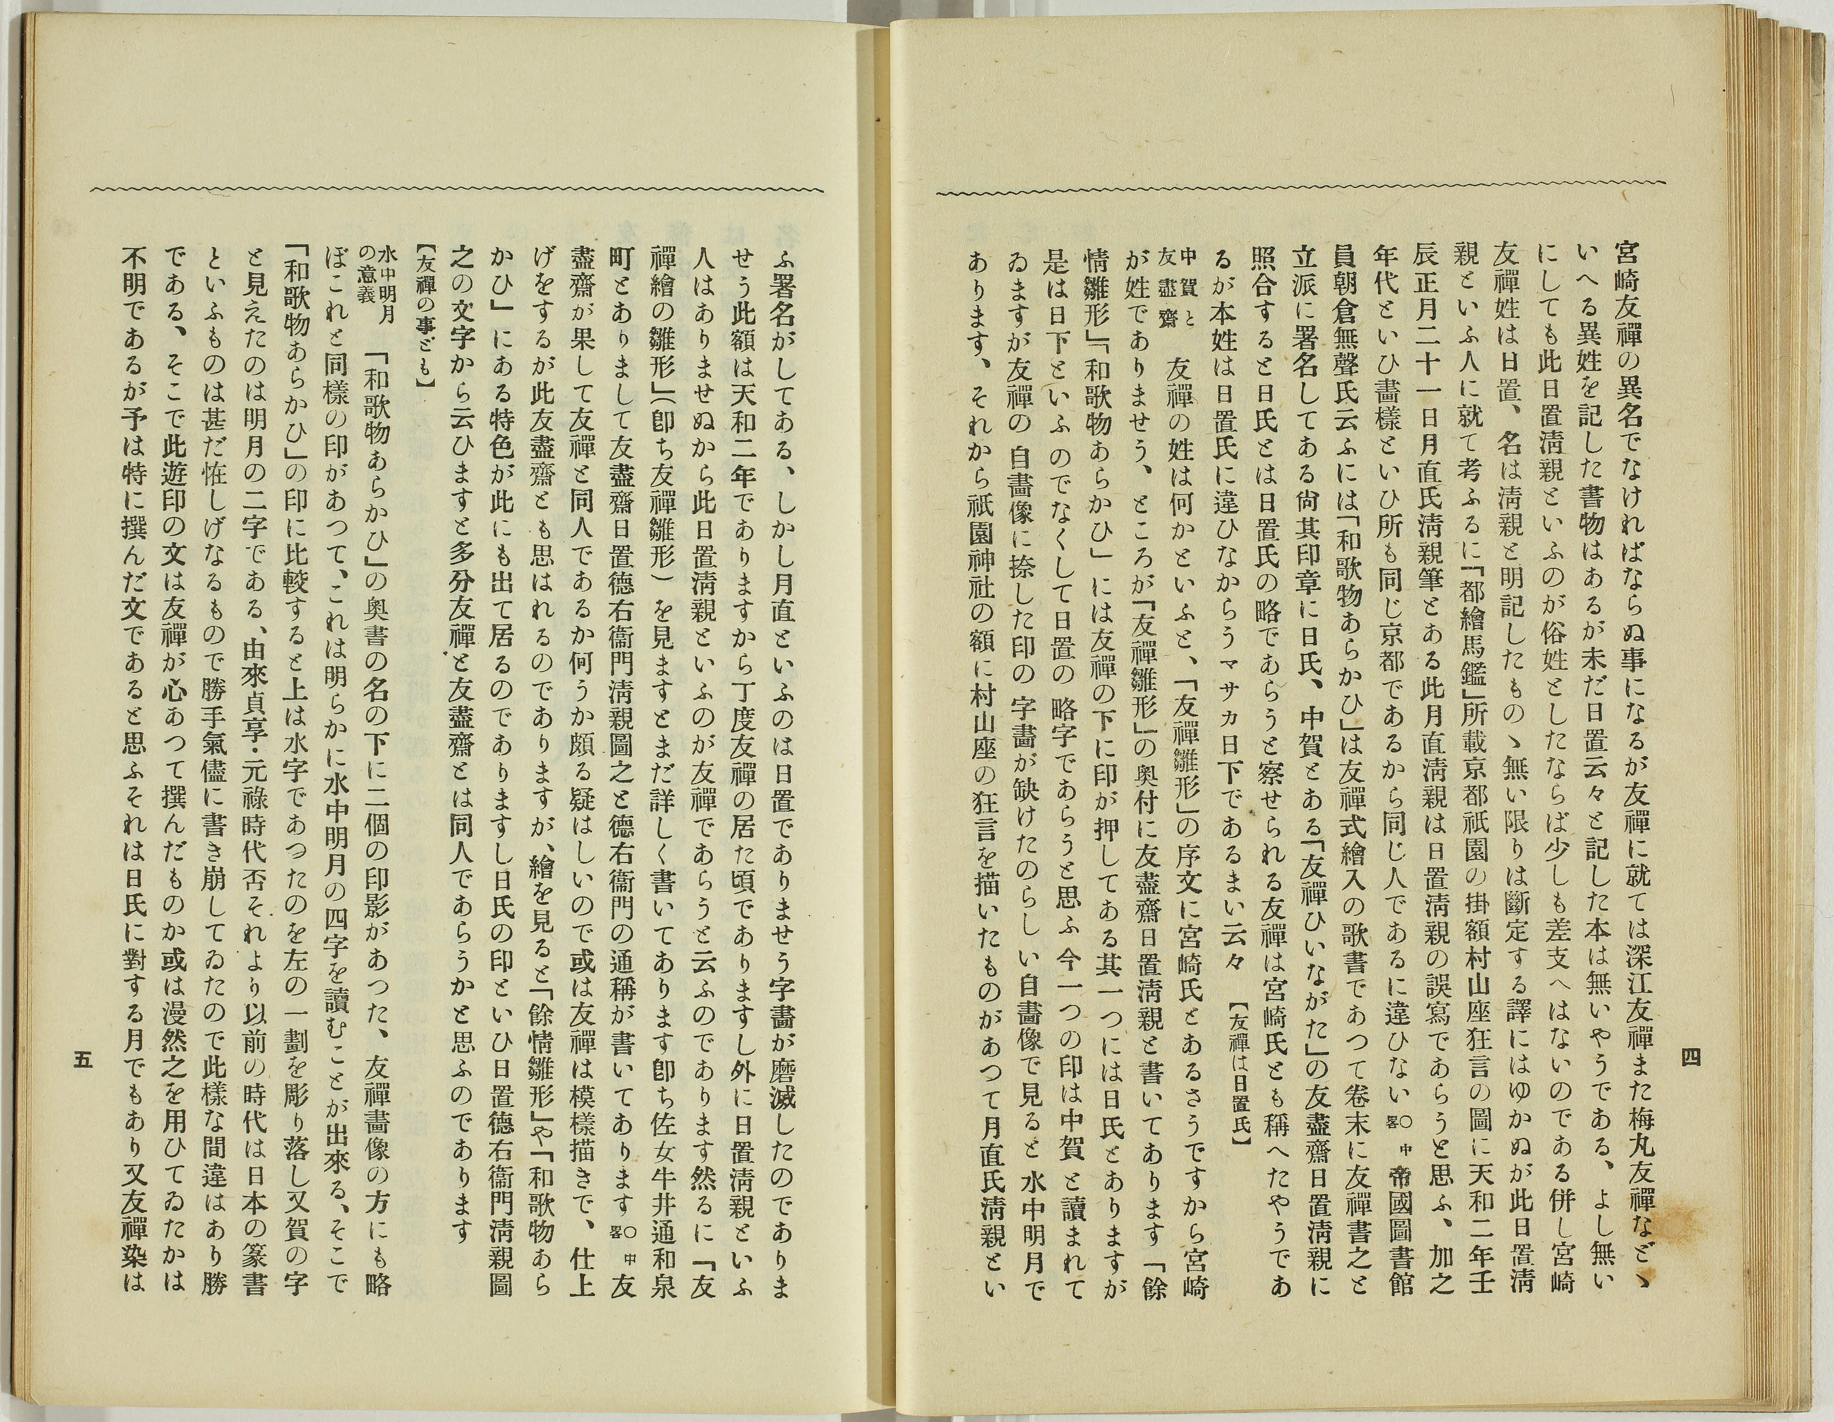 宮崎友禪の異名でなければならぬ事になるが友禪に就ては深江友禪また梅丸友禪などゝ
いへる異姓を記した書物はあるが未だ日置云々と記した本は無いやうである、よし無い
にしても此日置淸親といふのが俗姓としたならば少しも差支へはないのである併し宮崎
友禪姓は日置、名は淸親と明記したものゝ無い限りは斷定する譯にはゆかぬが此日置淸
親といふ人に就て考ふるに「都繪馬鑑」所載京都祇園の掛額村山座狂言の圖に天和二年壬
辰正月二十一日月直氏淸親筆とある此月直淸親は日置淸親の誤寫であらうと思ふ、加之
年代といひ畫樣といひ所も同じ京都であるから同じ人であるに違ひない〇中畧帝國圖書館
員朝倉無聲氏云ふには「和歌物あらかひ」は友禪式繪入の歌書であつて卷末に友禪書之と
立派に署名してある尙其印章に日氏、中賀とある「友禪ひいながた」の友盡齋日置淸親に
照合すると日氏とは日置氏の略であらうと察せられる友禪は宮崎氏とも稱へたやうであ
るが本姓は日置氏に違ひなからうマサカ日下であるまい云々　【友禪は日置氏】
中賀と
友盡齋
友禪の姓は何かといふと、「友禪雛形」の序文に宮崎氏とあるさうですから宮崎
が姓でありませう、ところが「友禪雛形」の奧付に友盡齋日置淸親と書いてあります「餘
情雛形」「和歌物あらかひ」には友禪の下に印が押してある其一つには日氏とありますが
是は日下といふのでなくして日置の略字であらうと思ふ今一つの印は中賀と讀まれて
ゐますが友禪の自畫像に捺した印の字畵が缺けたのらしい自畫像で見ると水中明月で
あります、それから祇園神社の額に村山座の狂言を描いたものがあつて月直氏淸親とい
四
ふ署名がしてある、しかし月直といふのは日置でありませう字畵が磨滅したのでありま
せう此額は天和二年でありますから丁度友禪の居た頃でありますし外に日置淸親といふ
人はありませぬから此日置淸親といふのが友禪であらうと云ふのであります然るに「友
禪繪の雛形」(卽ち友禪雛形)を見ますとまだ詳しく書いてあります卽ち佐女牛井通和泉
町とありまして友盡齋日置德右衞門淸親圖之と德右衞門の通稱が書いてあります〇中畧友
盡齋が果して友禪と同人であるか何うか頗る疑はしいので或は友禪は模樣描きで、仕上
げをするが此友盡齋とも思はれるのでありますが、繪を見ると「餘情雛形」や「和歌物あら
かひ」にある特色が此にも出て居るのでありますし日氏の印といひ日置德右衞門淸親圖
之の文字から云ひますと多分友禪と友盡齋とは同人であらうかと思ふのであります
【友禪の事ども】
水中明月
の意義
「和歌物あらかひ」の奧書の名の下に二個の印影があつた、友禪畫像の方にも略
ぼこれと同樣の印があつて、これは明らかに水中明月の四字を讀むことが出來る、そこで
「和歌物あらかひ」の印に比較すると上は水字であつたのを左の一劃を彫り落し又賀の字
と見えたのは明月の二字である、由來貞享・元祿時代否それより以前の時代は日本の篆書
といふものは甚だ恠しげなるもので勝手氣儘に書き崩してゐたので此樣な間違はあり勝
である、そこで此遊印の文は友禪が心あつて撰んだものか或は漫然之を用ひてゐたかは
不明であるが予は特に撰んだ文であると思ふそれは日氏に對する月でもあり又友禪染は
五